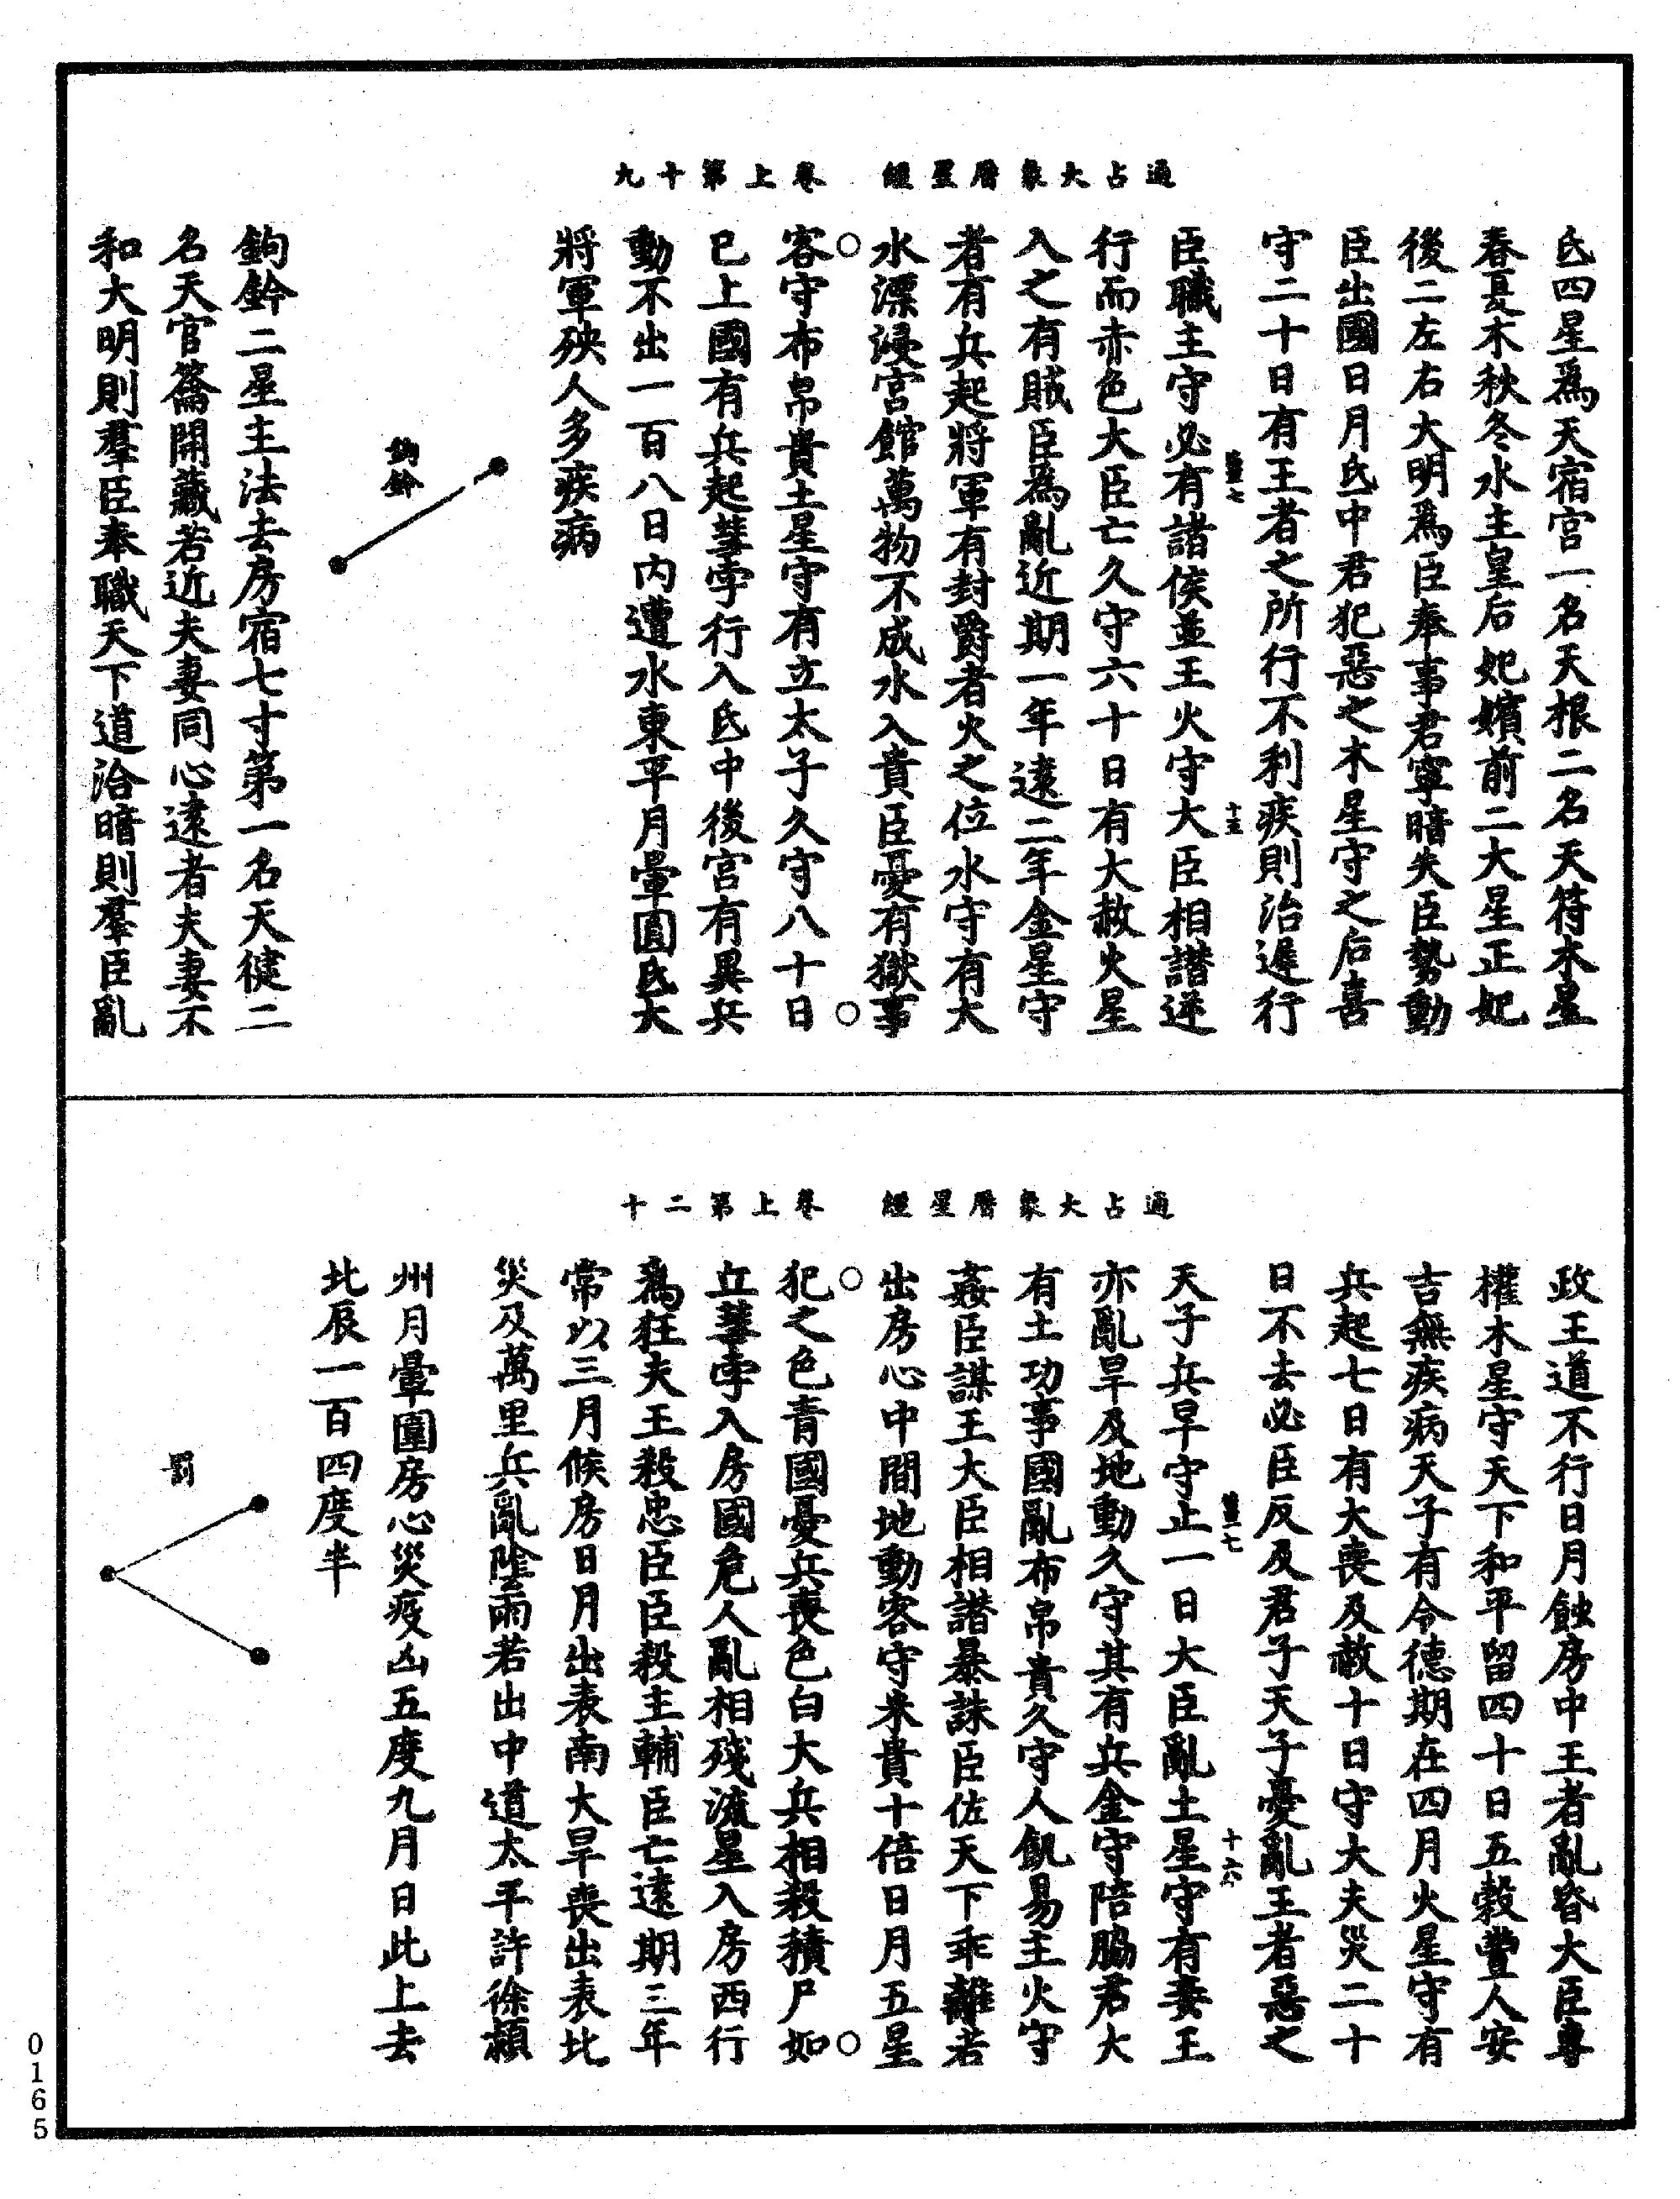 通占大象曆星經　卷上第十九
氐四星爲天宿宮一名天根二名天符木星
春夏木秋冬水主皇后妃嬪前二大星正妃
後二左右大明爲臣奉事君寧暗失臣勢動
臣出國日月氐中君犯惡之木星守之后喜
守二十日有王者之所行不利疾則治遲行
臣職主守必有諸侯並王火守大臣相譖逆
十五
行而赤色大臣亡久守六十日有大赦火星
入之有賊臣爲亂近期一年遠二年金星守
者有兵起將軍有封爵者火之位水守有大
水漂浸宮館萬物不成水入貴臣憂有獄事
客守布帛貴土星守有立太子久守八十日
已上國有兵起彗孛行入氐中後宮有異兵
動不出一百八日內遭水東平月暈圓氐大
將軍殃人多疾病
鉤鈐
鉤鈐二星主法去房宿七寸第一名天健二
名天官籥開藏若近夫妻同心遠者夫妻不
和大明則羣臣奉職天下道洽暗則羣臣亂
通占大象曆星經　卷上第二十
政王道不行日月蝕房中王者亂昏大臣專
權木星守天下和平留四十日五穀豐人安
吉無疾病天子有令德期在四月火星守有
兵起七日有大喪及赦十日守大夫災二十
日不去必臣反及君子天子憂亂王者惡之
天子兵旱守止一日大臣亂土星守有妻王
十六
亦亂旱及地動久守其有兵金守陪脇君大
有土功事國亂布帛貴久守人飢易主火守
姦臣謀王大臣相譖暴誅臣佐天下乖離若
出房心中間地動客守米貴十倍日月五星
犯之色青國憂兵喪色白大兵相殺積尸如
丘彗孛入房國危人亂相殘流星入房西行
爲狂夫王殺忠臣臣殺主輔臣亡遠期三年
常以三月候房日月出表南大旱喪出表北
災及萬里兵亂陰雨若出中道太平許徐潁
州月暈圍房心災疫凶五度九月日此上去
北辰一百四度半
罰
0165